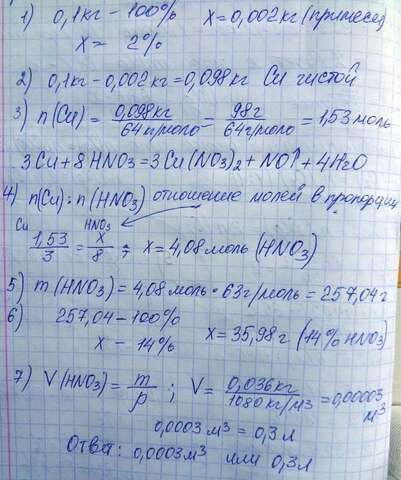 1) 0,1кг - 100% x = 0,002 кг (примеси)
x - 2%
2) 0,1кг - 0,002 кг = 0,098 кг Cu чистой
3) n(Cu) = 0,098кг / 64 г/моль = 98г / 64г/моль = 1,53 моль
3Cu + 8HNO3 = 3Cu(NO3)2 + NO↑ + 4H2O
4) n(Cu) : n(HNO3) отношение молей в пропорции
Cu 1,53 / 3 = HNO3 x / 8 ; x = 4,08 моль (HNO3)
5) m(HNO3) = 4,08 моль · 63 г/моль = 257,04 г
6) 257,04 - 100%
x - 14% x = 35,98 г (14% HNO3)
7) V(HNO3) = m / ρ ; V = 0,036кг / 1080 кг/м3 = 0,00003 м3
0,0003 м3 = 0,3 л
Ответ: 0,0003 м3 или 0,3 л